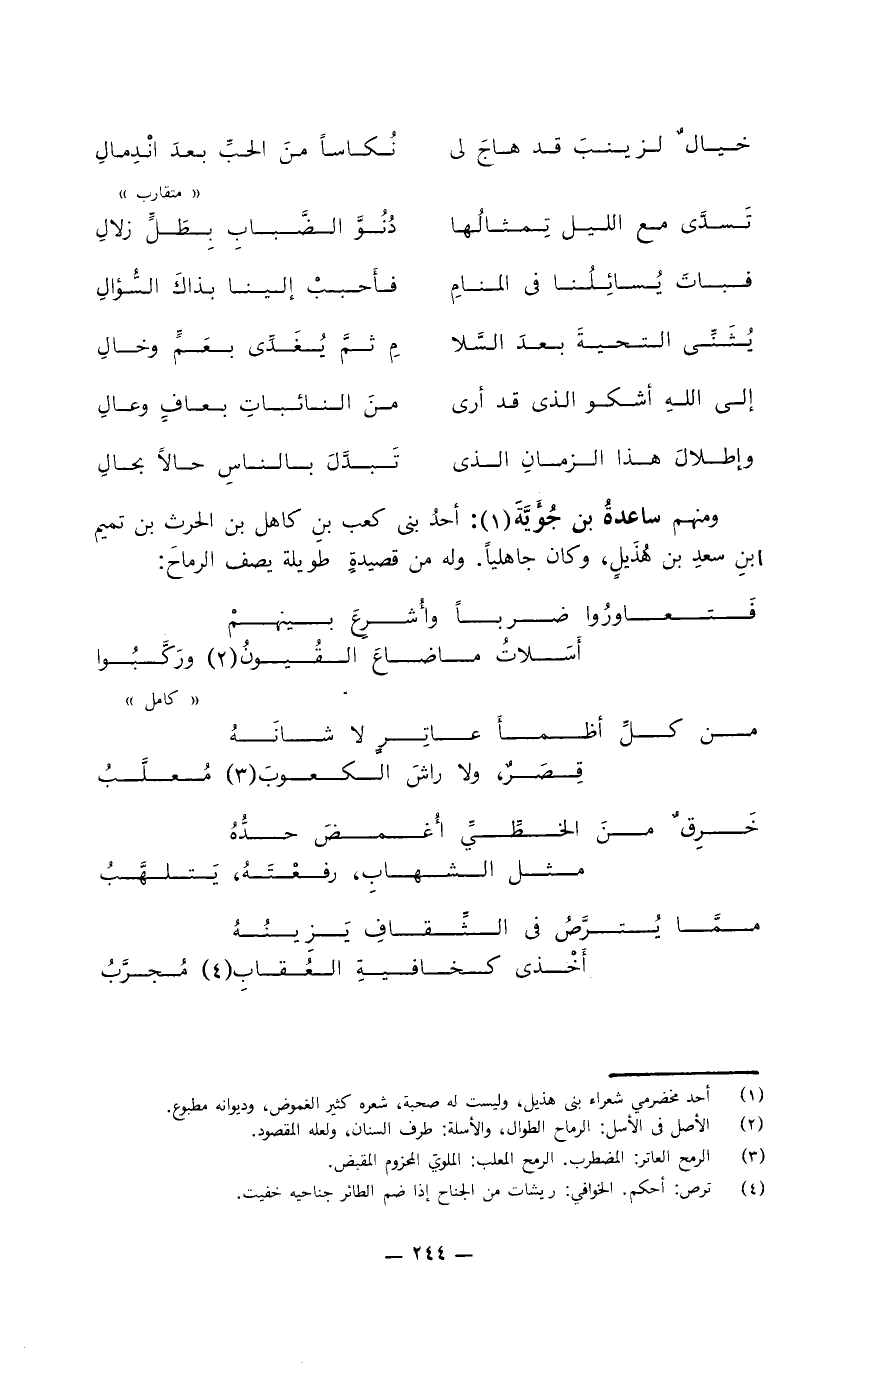 خيالٌ لزينبَ قد هاجَ لى نُكاساً منَ الحبِّ بعدَ انْدِمالِ
« متقارب »
تَسدَّى مع الليلِ تِمثالُها دُنُوَّ الضَّبابِ بِطَلٍّ زلالِ
فباتَ يُسائِلُنا فى المنامِ فأحبِبْ إلينا بذاكَ السُّؤالِ
يُثَنِّى التحيةَ بعدَ السَّلا مِ ثمَّ يُفَدِّى بعَمٍّ وخالِ
إلى اللهِ أشكو الذى قد أرى منَ النائباتِ بعافٍ وعالِ
وإطلالَ هذا الزمانِ الذى تَبدَّلَ بالناسِ حالاً بحالِ
ومنهم ساعدةُ بن جُؤَيَّةَ(١): أحدُ بنى كعب بنِ كاهل بن الحرث بن تميم
ابنِ سعدِ بن هُذَيلٍ، وكان جاهلياً. وله من قصيدةٍ طويلة يصف الرماحَ:
فَتعاورُوا ضرباً وأُشرِعَ بينهمْ
أَسَلاتُ ماضاعَ القُيونُ(٢) ورَكَّبُوا
« كامل »
من كلِّ أظمأَ عاتِرٍ لا شانَهُ
قِصَرٌ، ولا راشَ الكعوبَ(٣) مُعلَّبُ
خَرِقٌ منَ الخطِّيِّ أُغمِضَ حدُّهُ
مثلِ الشهابِ، رفعْتَهُ، يَتلهَّبُ
ممَّا يُترَّصُ فى الثِّقافِ يَزِينُهُ
أَخْذى كخافيةِ العُقابِ(٤) مُجرَّبُ
(١) أحد مخضرمي شعراء بنى هذيل، وليست له صحبة، شعره كثير الغموض، وديوانه مطبوع.
(٢) الأصل فى الأسل: الرماح الطوال، والأسلة: طرف السنان، ولعله المقصود.
(٣) الرمح العاتر: المضطرب. الرمح المعلب: الملويّ المحزوم المقبض.
(٤) ترص: أحكم. الخوافي: ريشات من الجناح إذا ضم الطائر جناحيه خفيت.
— ٢٤٤ —